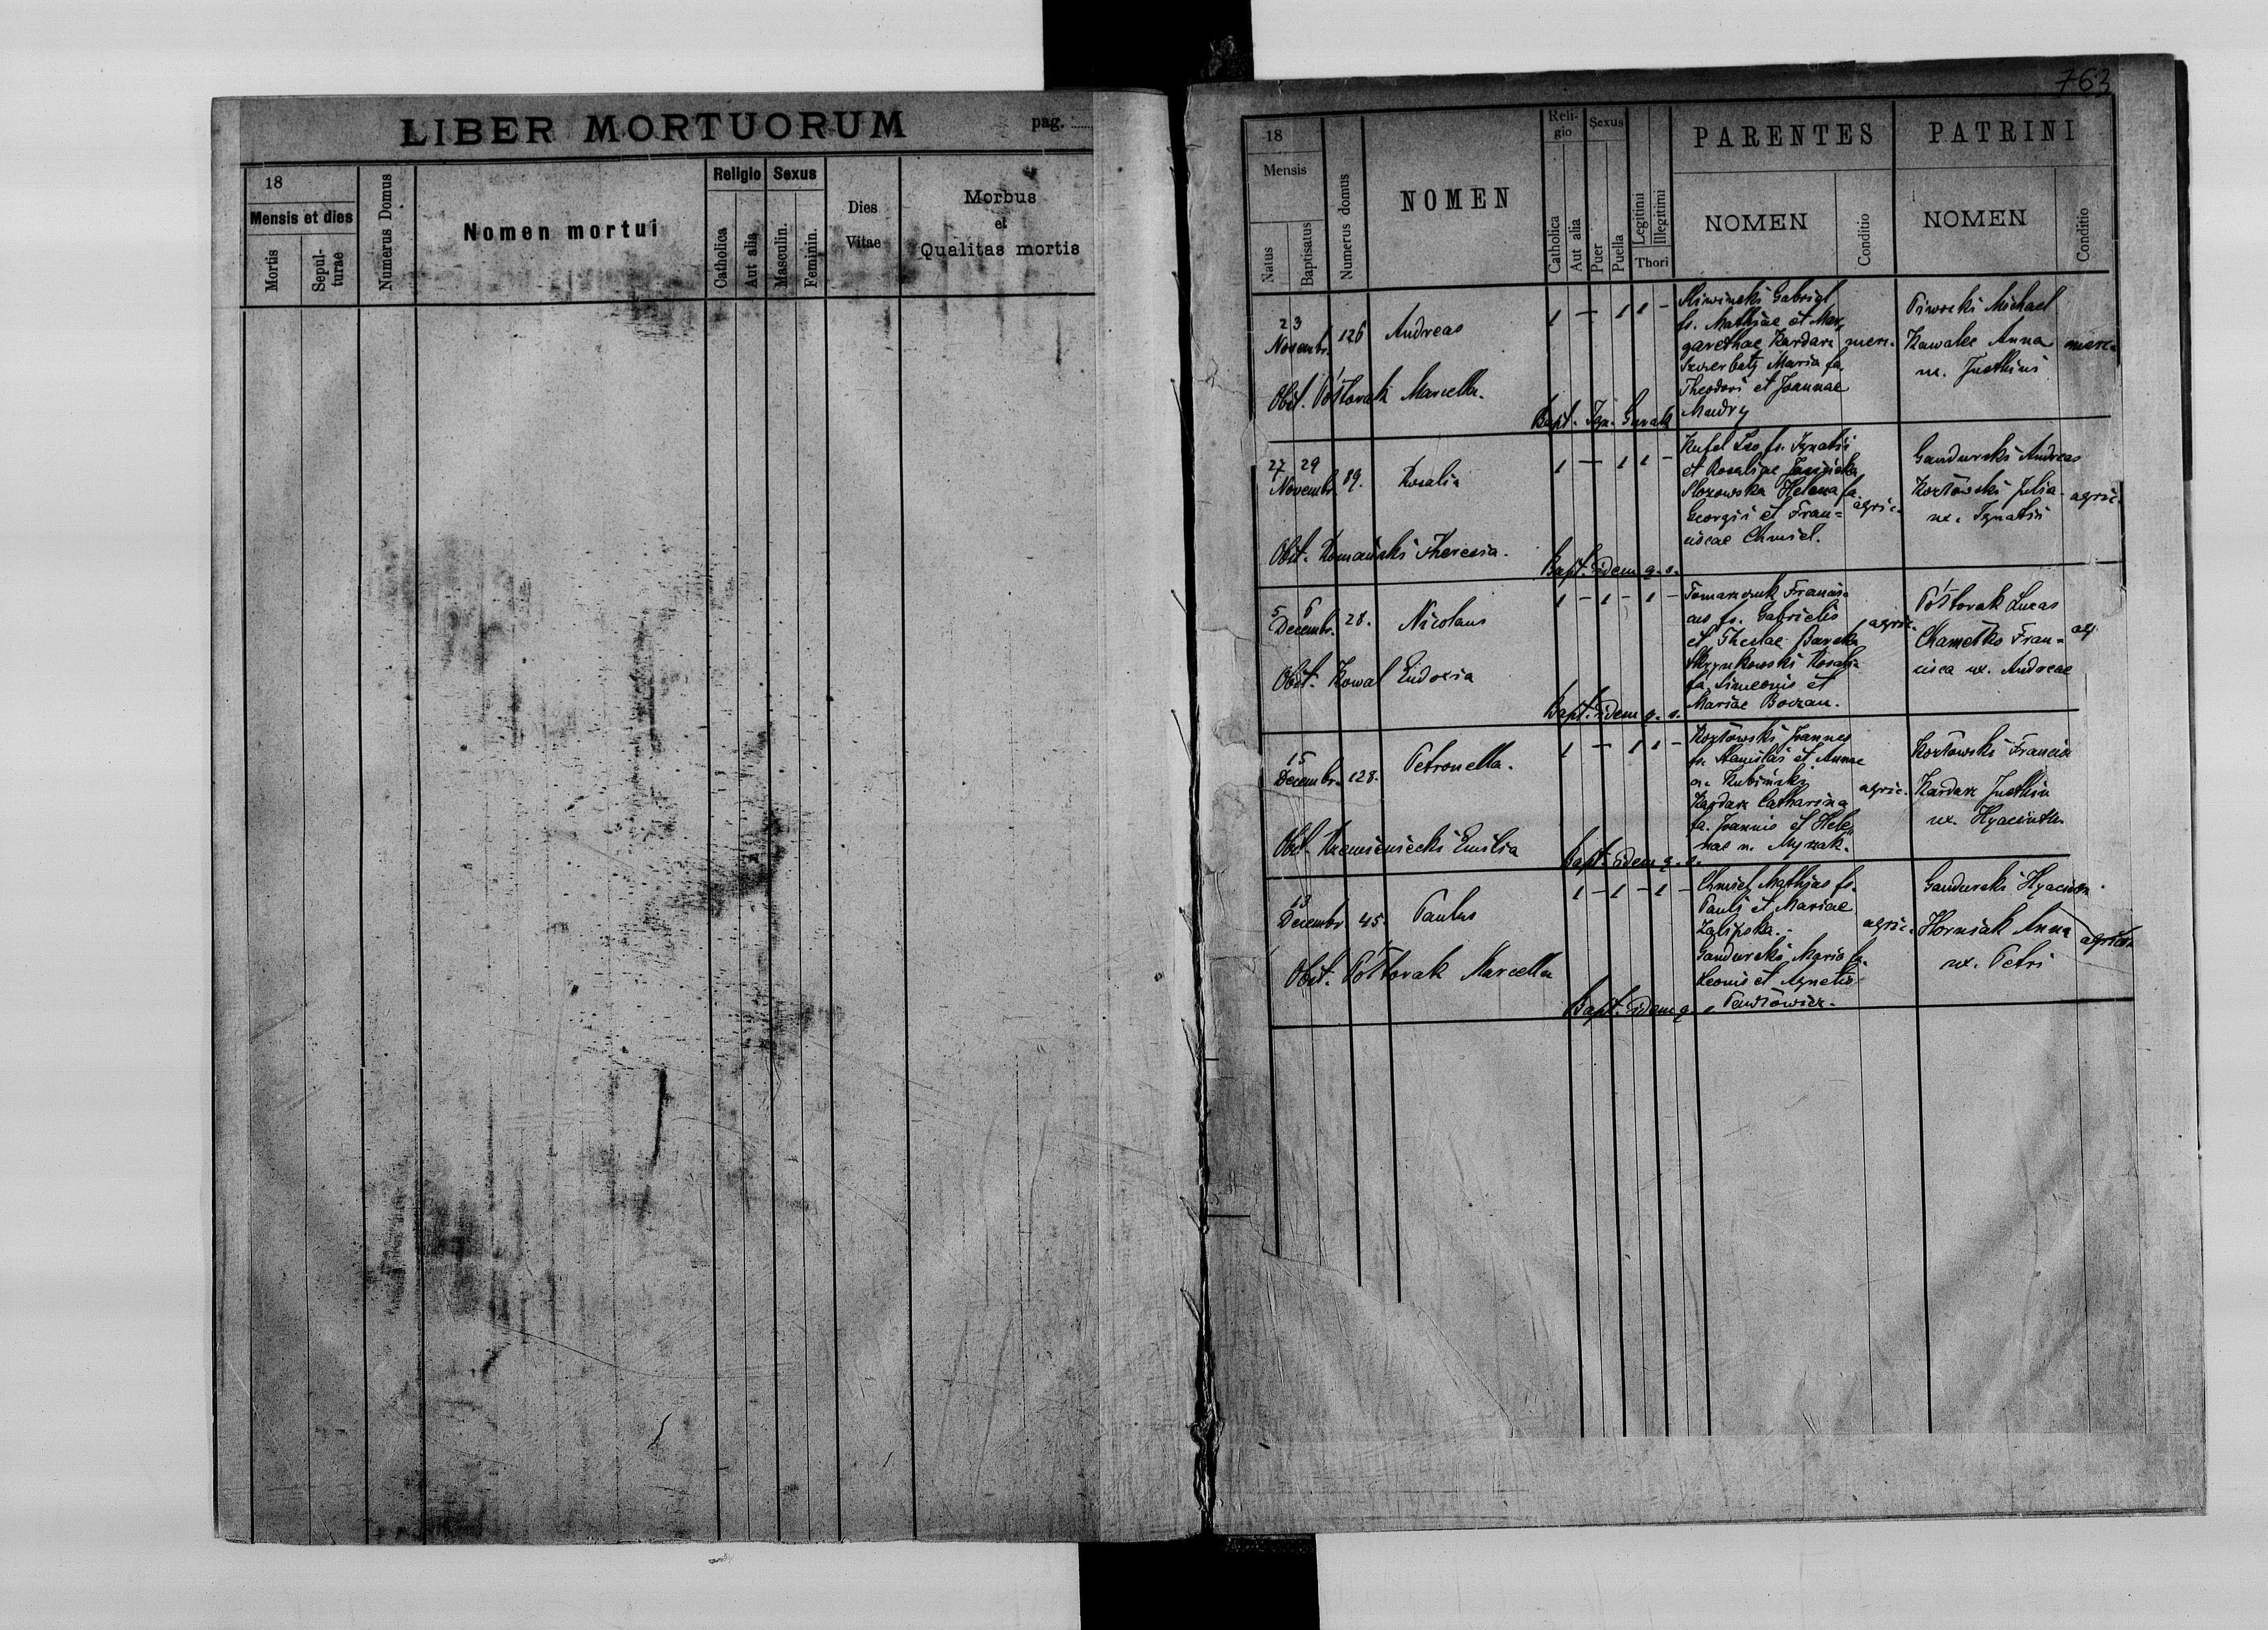 LIBER MORTUORUM pag.
18
Mensis et dies
Mortis
Sepul-
turae
Numerus Domus
Nomen mortui
Religio
Catholica
Aut alia
Sexus
Masculin.
Feminin.
Dies
Vitae
Morbus
et
Qualitas mortis
763
18
Mensis
Natus
Baptisatus
Numerus domus
NOMEN
Reli-
gio
Catholica
Aut alia
Sexus
Puer
Puella
Legitimi
Illegitimi
Thori
PARENTES
NOMEN
Conditio
PATRINI
NOMEN
Conditio
23
Novembr. 126 Andreas 1 – 1 1 –
Sliwinski Gabriel
fs. Mathiae et Mar
garethae Kardasz merc.
Maria fa.
Theodori et Joannae
Mudry
Piworski Michael
Kawalec Anna merc.
ux. Justini
Obst. Półtorak Marcella.
Bapt. Ign. Guralt
27 29
Novembr. 89. Rosalia 1 – 1 1 –
Kufel Leo fs. Ignatii
et Rosaliae
Helena fa.
Georgii et Fran= agric.
ciscae Chmiel.
Gandurski Andreas
Kozłowski Julia agric.
ux. Ignatii
Obst. Romański Theresia.
Bapt. idem q. s.
5 6
Decembr. 28. Nicolaus 1 – 1 – 1 –
Tomaszczuk Francis
cus fs. Gabrielis agric.
et Theclae
Rosalia
fa. Simeonis et
Mariae Boczan.
Półtorak Lucas
Chamełko Fran= ag.
cisca ux. Andreae
Obst. Kowal Eudoxia
Bapt. idem q. s.
15
Decembr. 128. Petronella. 1 – 1 1 –
Kozłowski Joannes
fs. Stanislai et Annae
n. Kubiński
Kardasz Catharina agric.
fa. Joannis et Hele
nae n. Myszak.
Kozłowski Francisc
Kardasz Justina
ux. Hyacinthi
Obst. Krzemieniecki Emilia
Bapt. idem q. s.
13
Decembr. 45. Paulus 1 – 1 – 1 –
Chmiel Mathias fs.
Pauli et Mariae
Zalipska. agric.
Gandurski Maria fa.
Leonis et Agnetis
Pawłowicz.
Gandurski Hyacinth
Horniak Anna
ux. Petri
Obst. Półtorak Marcella
Bapt. idem q. s.